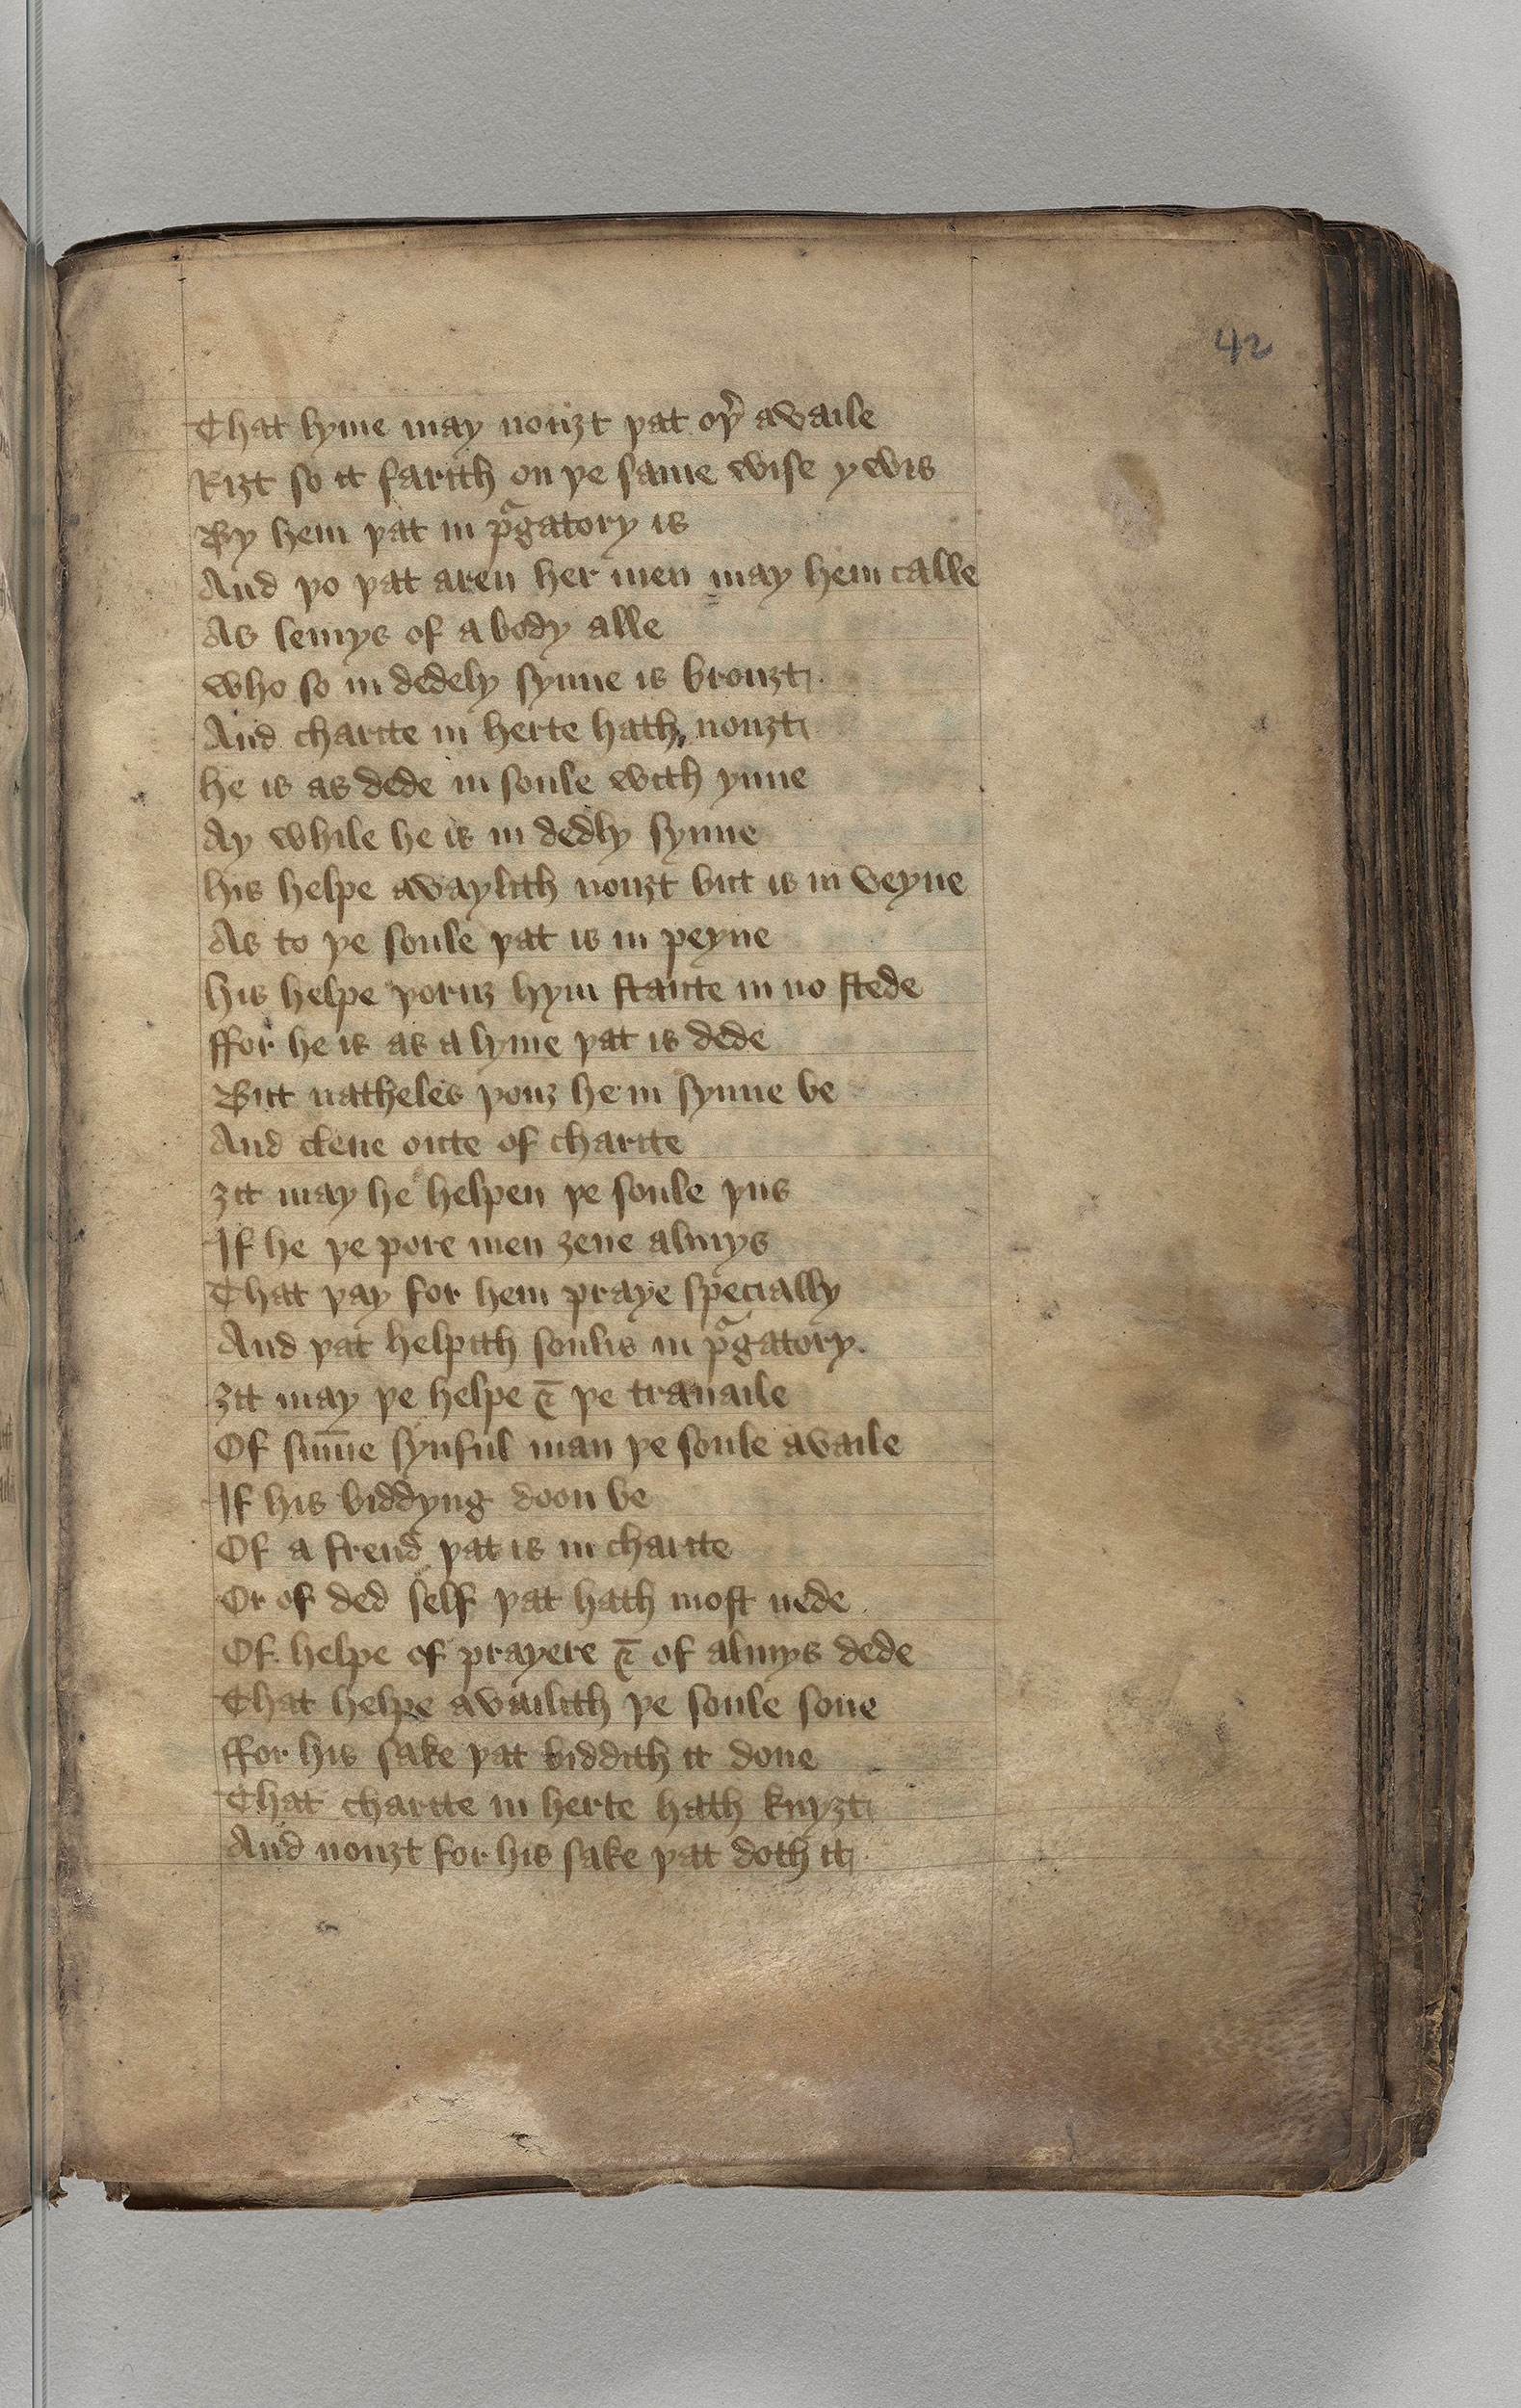 42
That lyme may nouȝt þat oþ̉ availe
Riȝt so it farith on þe same wise ywis
By hem þat in pᵃgatory is
And þo þat aren her men may hem calle
As lemys of a body alle
Who so in dedely synne is brouȝt
And charite in herte hath nouȝt
he is as dede in soule with ynne
Ay while he is in dedly synne
his helpe awaylith nouȝt but is in veyne
As to þe soule þat is in peyne
his helpe þoruȝ hym stante in no stede
ffor he is as a lyme þat is dede
But natheles þouȝ he in synne be
And clene oute of charite
ȝit may he helpen þe soule þus
If he þe pore men ȝeue almys
That þay for hem praye specially
And þat helpith soulis in pᵃgatory.
ȝit may þe helpe ⁊ þe trauaile
Of su̅me synful man þe soule availe
If his biddyng doon be
Of a frend þat is in charite
Or of ded self þat hath most nede
Of helpe of prayere ⁊ of almys dede
That helpe availith þe soule sone
ffor his sake þat biddith it done
That charite in herte hath knyȝt
And nouȝt for his sake þat doth it